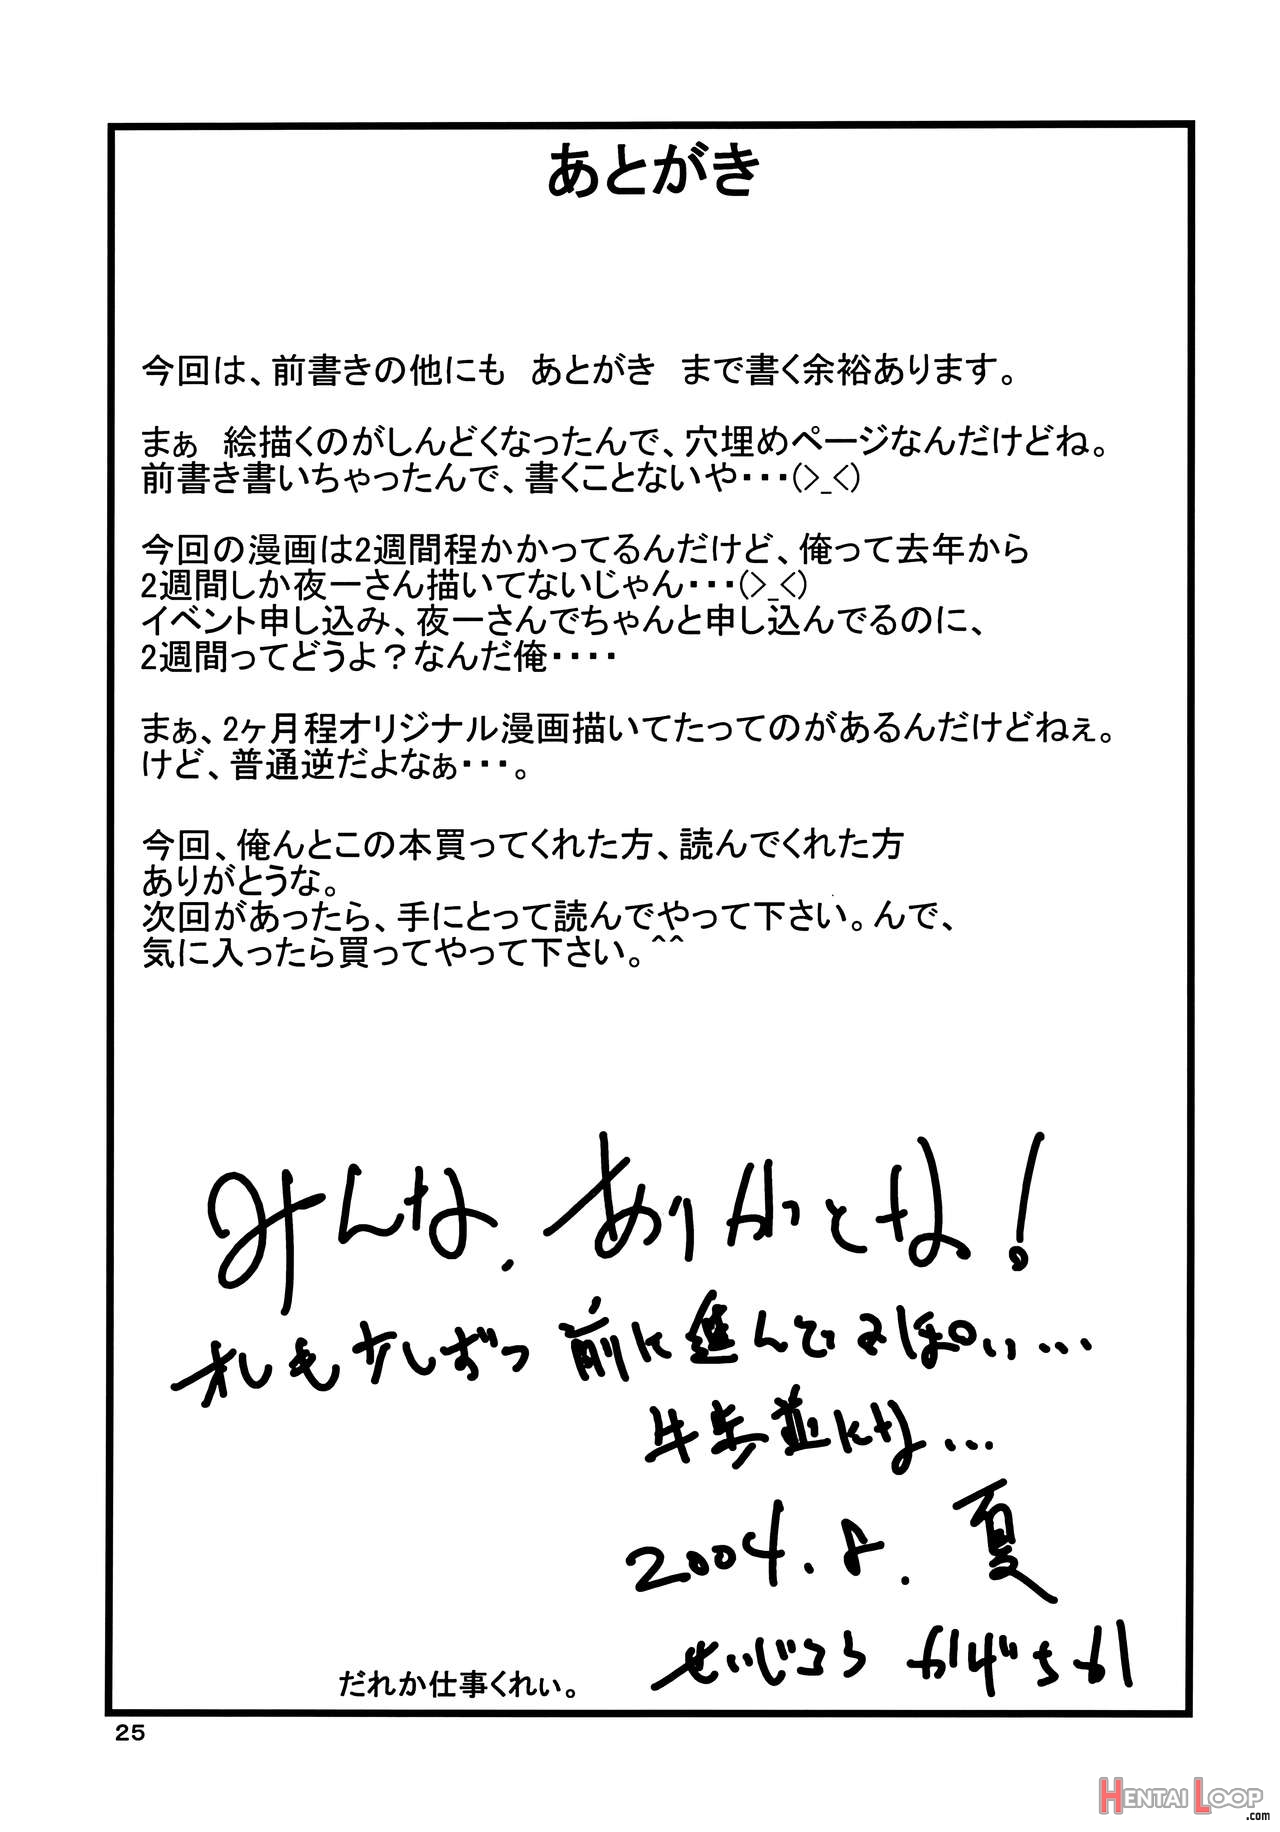 あとがき
今回は、前書きの他にも　あとがき　まで書く余裕あります。
まぁ　絵描くのがしんどくなったんで、穴埋めページなんだけどね。
前書き書いちゃったんで、書くことないや・・・(>_<)
今回の漫画は2週間程かかってるんだけど、俺って去年から
2週間しか夜一さん描いてないじゃん・・・(>_<)
イベント申し込み、夜一さんでちゃんと申し込んでるのに、
2週間ってどうよ？なんだ俺・・・・
まぁ、2ヶ月程オリジナル漫画描いてたってのがあるんだけどねぇ。
けど、普通逆だよなぁ・・・。
今回、俺んとこの本買ってくれた方、読んでくれた方
ありがとうな。
次回があったら、手にとって読んでやって下さい。んで、
気に入ったら買ってやって下さい。^^
みんな、ありがとな！
オレも少しずつ前に進んでるっぽい...
牛歩並にな...
2004.8.夏
せいじころ
だれか仕事くれぃ。
25
HENTAI LOOP
.com